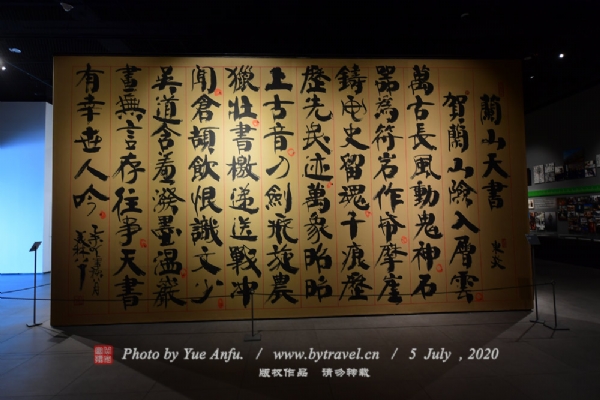 蘭山天書
賀蘭山險入層雲
萬古長風動鬼神石
器為符岩作摩崖
鑄史留魂千痕歷
歷先民跡萬象昭昭
上古音刀劍飛旋農
獵壯書檄遞送戰沖
聞倉頡飲恨識文少
吳道含羞潑墨溫巖
畫無言存往事天書
有幸世人吟
Photo by Yue Anfu. / www.bytravel.cn / 5 July , 2020
版权作品 请勿转载